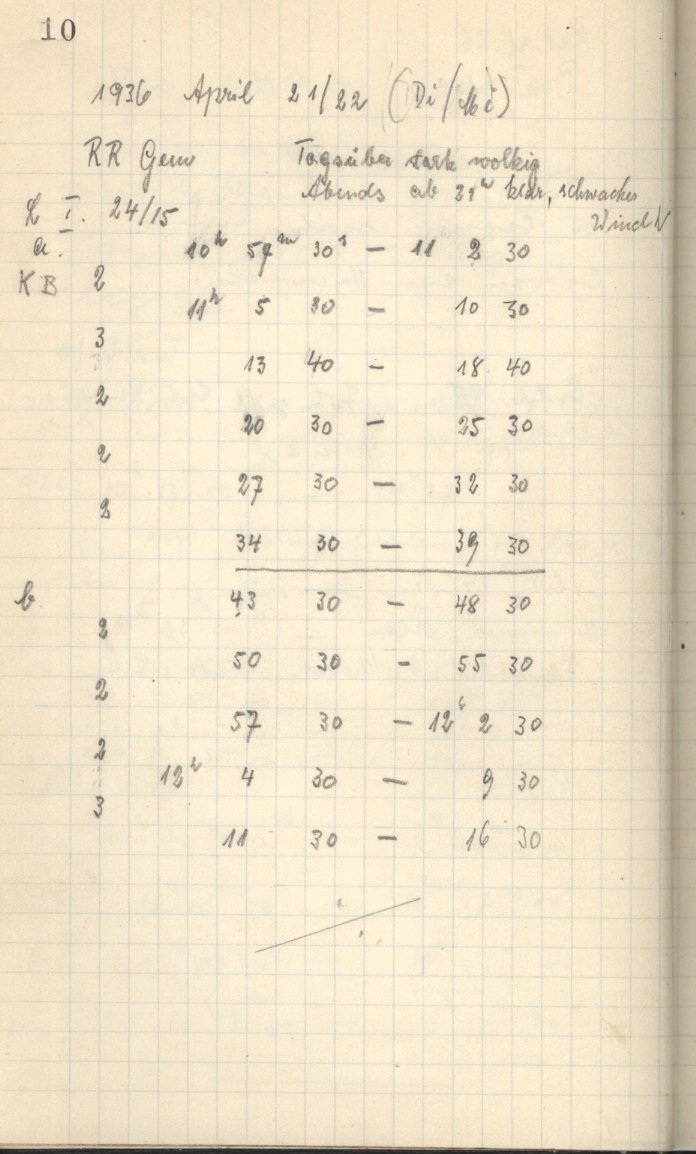 10
1936 April 21/22 (Di/Mi)
RR Gem Tagsüber stark wolkig
Abends ab 21h klar, schwacher
Wind N
L I. 24/15
a. 10h 57m 30s – 11 2 30
KB 2
11h 5 30 – 10 30
3
13 40 – 18 40
2
20 30 – 25 30
2
27 30 – 32 30
2
34 30 – 39 30
b. 43 30 – 48 30
2
50 30 – 55 30
2
57 30 – 12h 2 30
2
12h 4 30 – 9 30
3
11 30 – 16 30